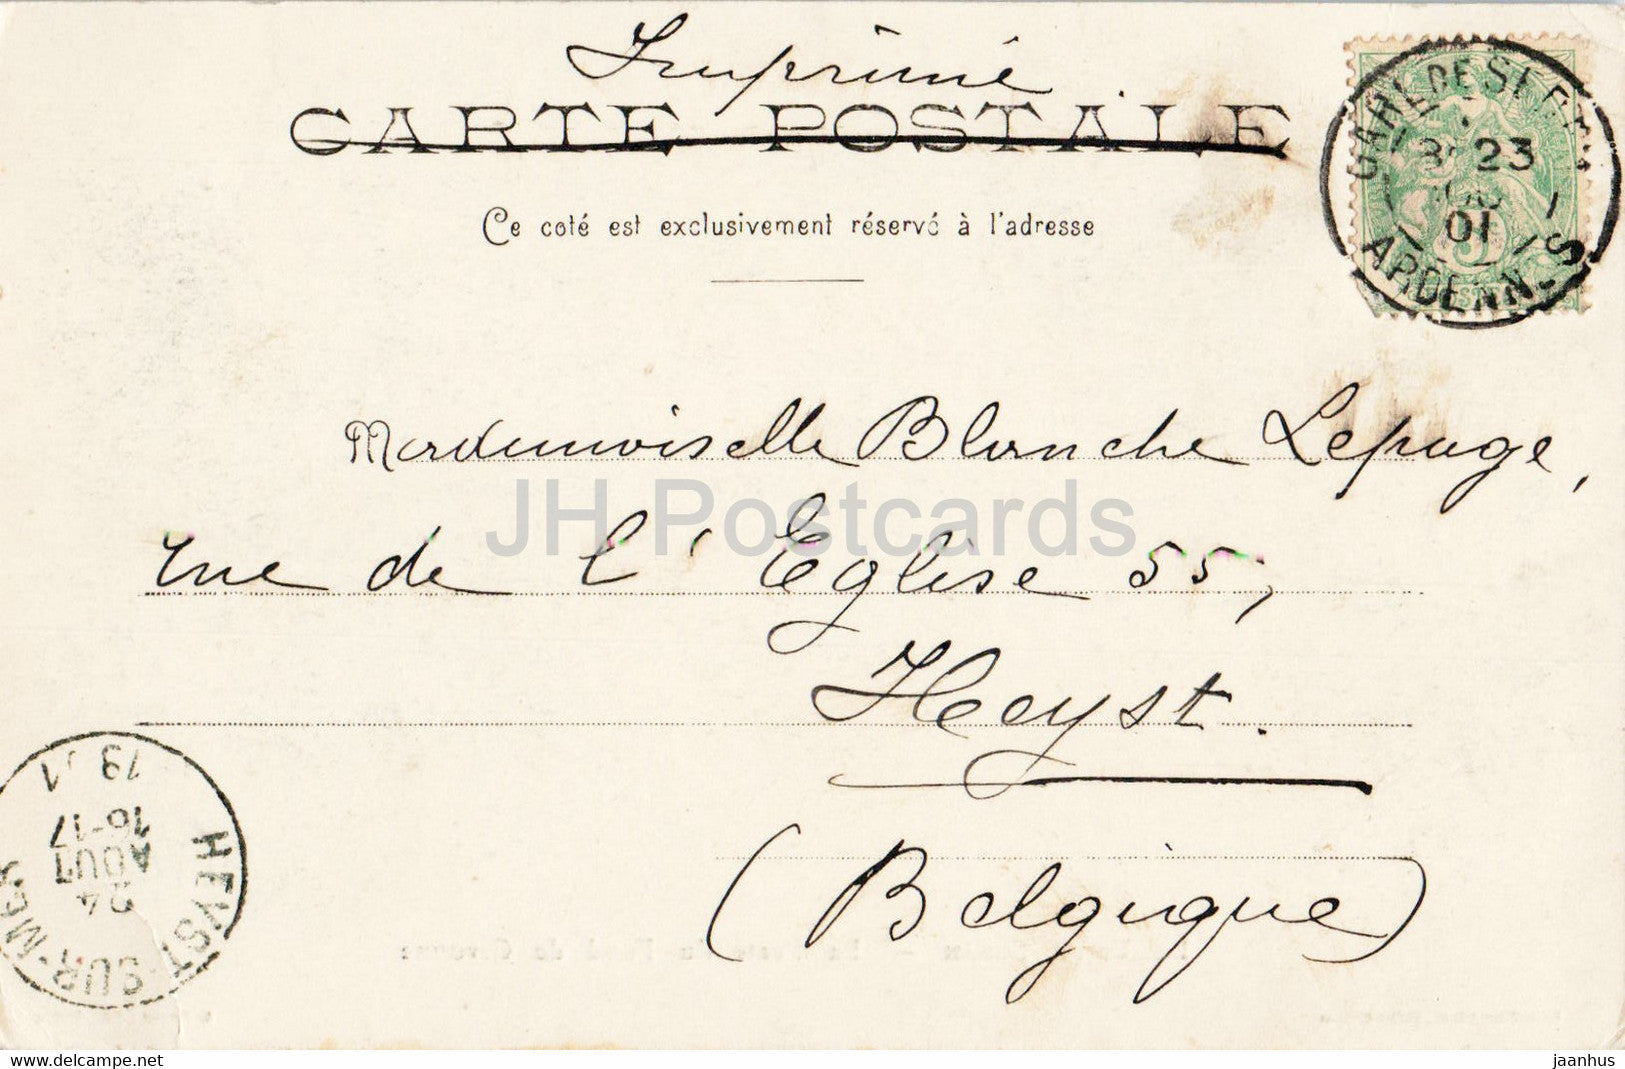 Imprimé
CARTE POSTALE
Ce coté est exclusivement réservé à l'adresse
GARE DE
23
01
ARDENNES
5
Mademoiselle Blanche Lepage,
rue de l'Eglise 55,
Heyst.
(Belgique)
HEYST-SUR-MER
24
AOUT
16-17
JH Postcards
jaanhus | https://www.delcampe.net